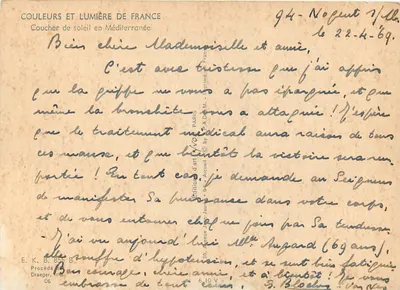 COULEURS ET LUMIÈRE DE FRANCE
Coucher de soleil en Méditerranée
94 - Nogent s/Me
le 22-4-69.
Bien chère Mademoiselle et amie,
C'est avec tristesse que j'ai appris
que la grippe ne vous a pas épargnée, et que
même la bronchite vous a attaquée ! J'espère
que le traitement médical aura raison de tous
ces maux, et que bientôt la victoire sera rem-
portée ! En tout cas, je demande au Seigneur
de manifester Sa puissance dans votre corps,
et de vous entourer chaque jour par Sa tendresse.
- J'ai vu aujourd'hui Mlle (69 ans),
elle souffre d'hypotension, et se sent bien fatiguée.
Bon courage, chère amie, et à bientôt ! Je vous
embrasse de tout
E. K. B.
Procédé
06